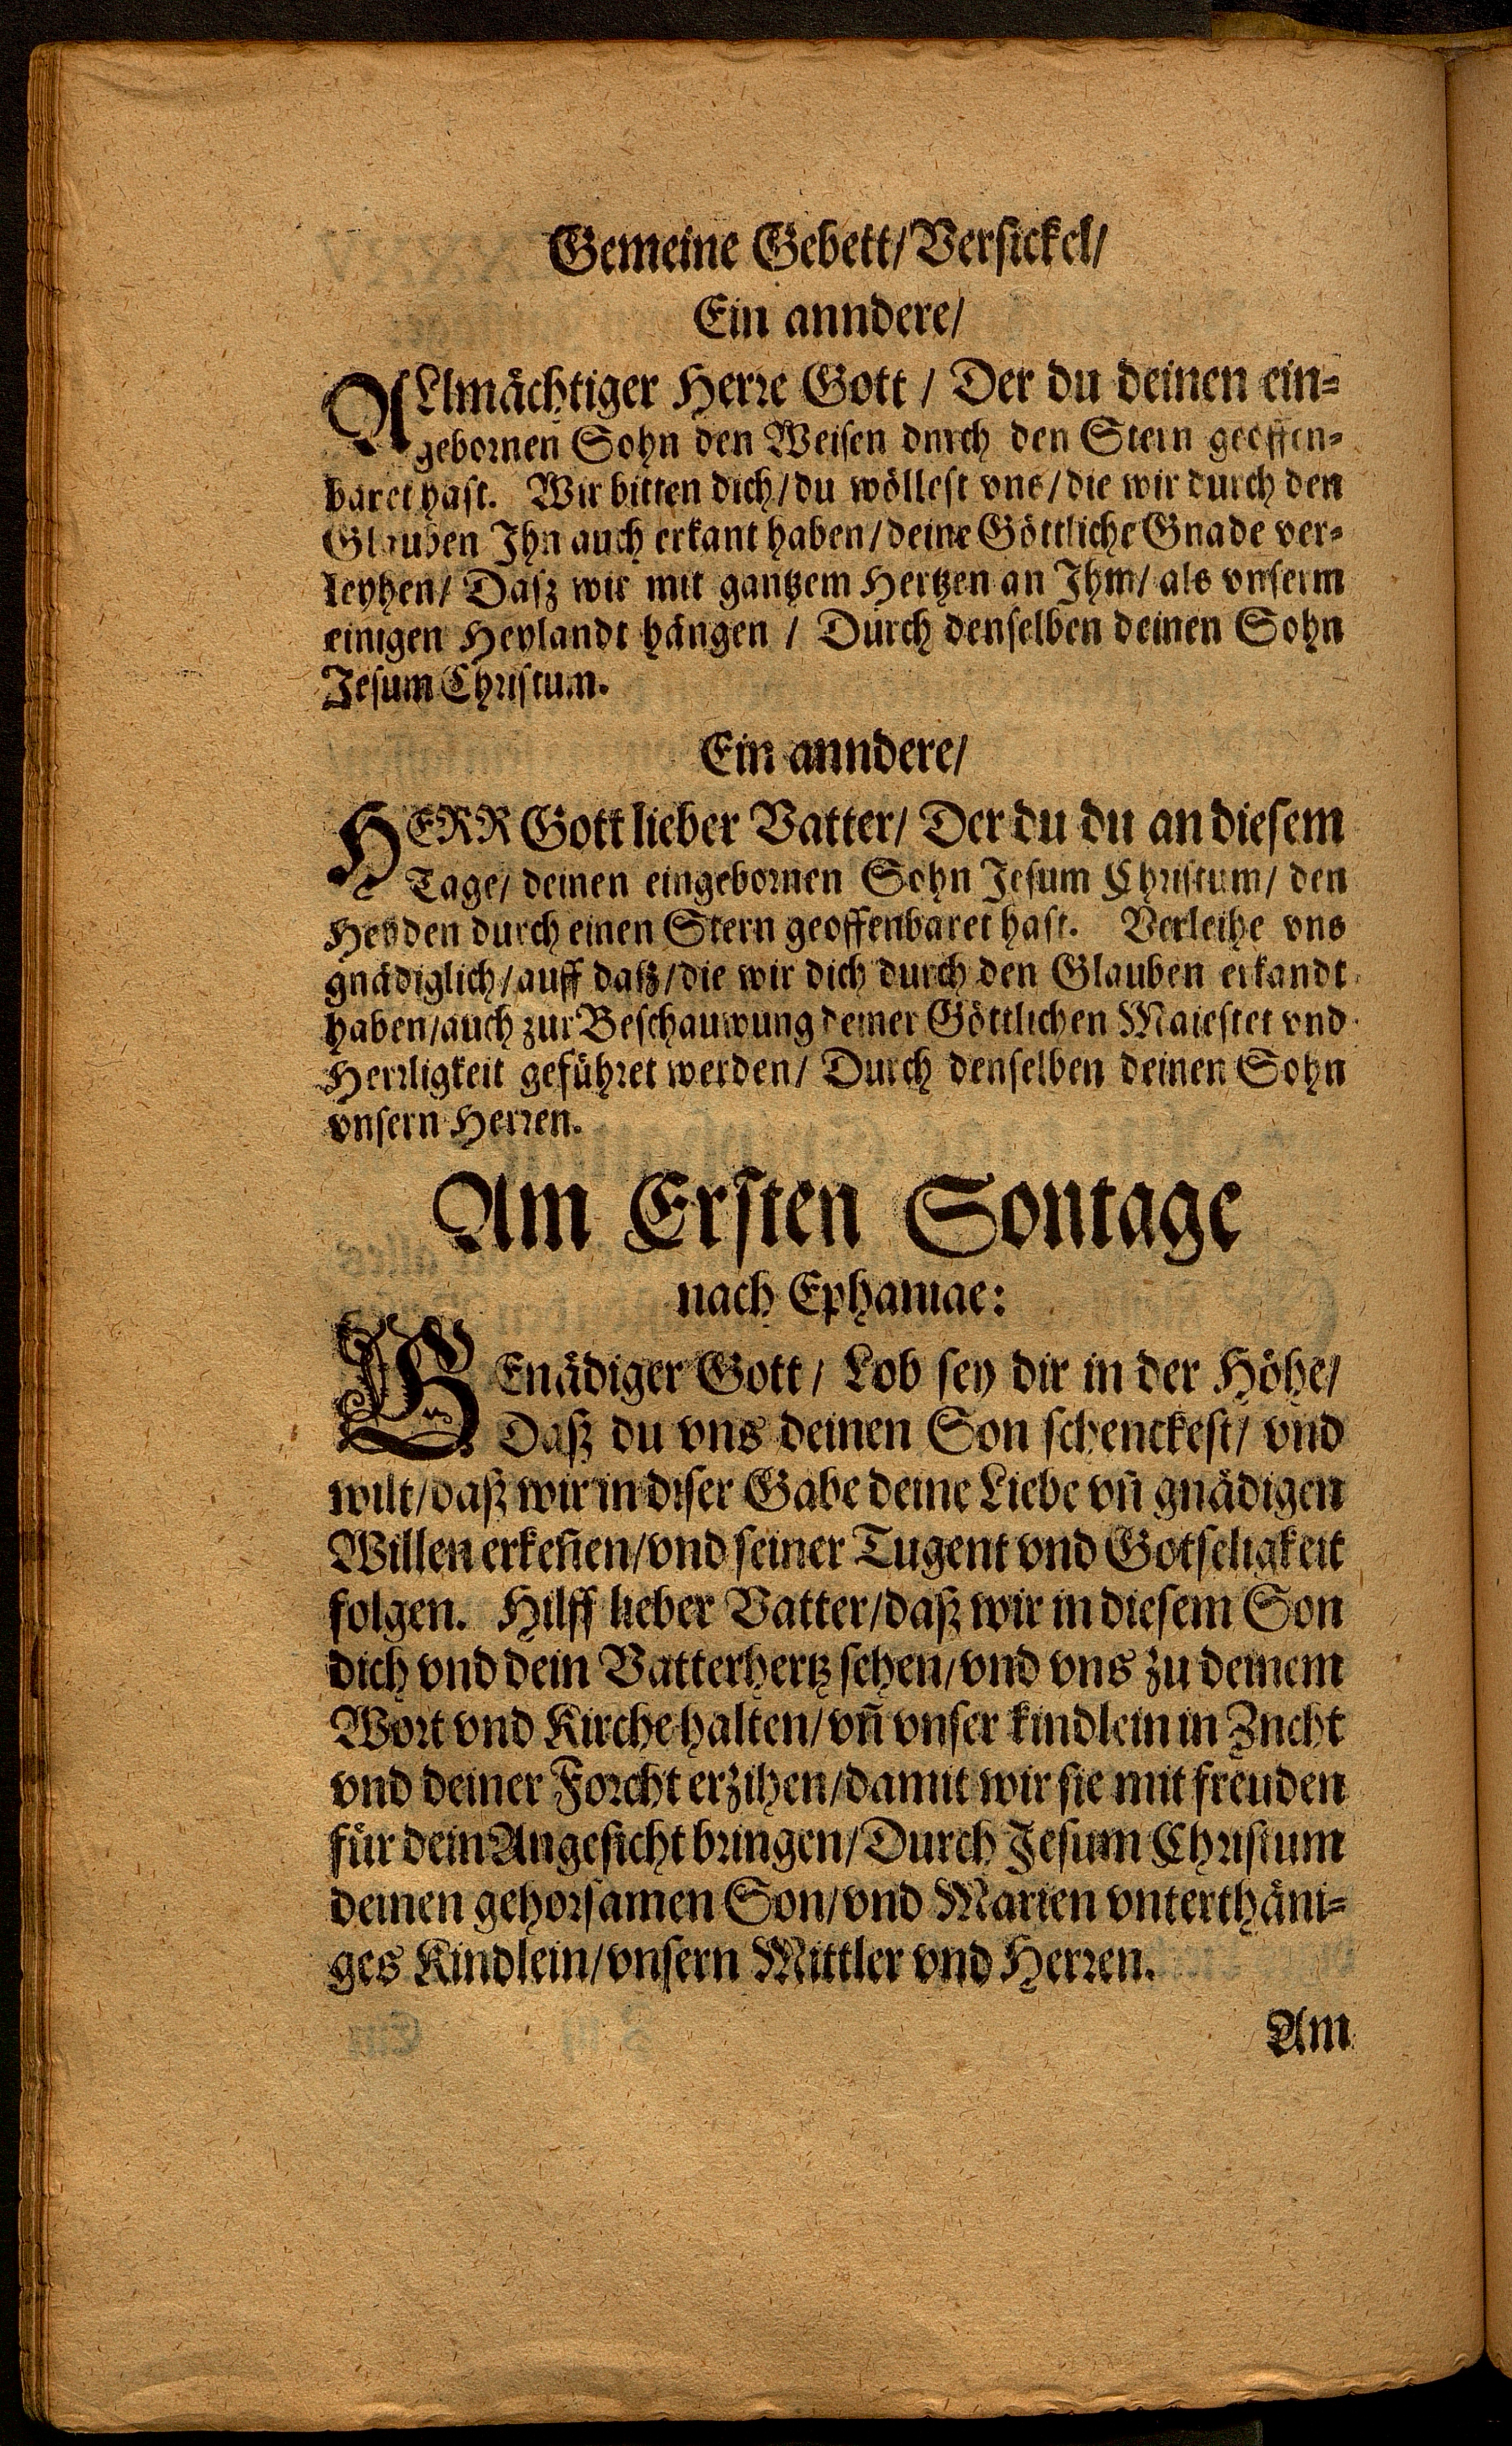 Gemeine Gebett/Versickel/
Ein anndere/
ALlmächtiger Herre Gott / Der du deinen ein-
gebornen Sohn den Weisen dnrch den Stern geoffen-
baret hast. Wir bitten dich/du wöllest vns/die wir durch den
Glauben Ihn auch erkant haben/deine Göttliche Gnade ver-
leyhen/ Dasz wir mit gantzem Hertzen an Ihm/ als vnserm
einigen Heylandt hängen / Durch denselben deinen Sohn
Jesum Christum.
Ein anndere/
HERR Gott lieber Vatter/ Der du du an diesem
Tage/ deinen eingebornen Sohn Jesum Christum/ den
Heyden durch einen Stern geoffenbaret hast. Verleihe vns
gnädiglich/auff daß/die wir dich durch den Glauben erkandt
haben/auch zur Beschauwung deiner Göttlichen Maiestet vnd
Herrligkeit geführet werden/ Durch denselben deinen Sohn
vnsern Herren.
Am Ersten Sontage
nach Ephaniae:
GEnädiger Gott/ Lob sey dir in der Höhe/
Daß du vns deinen Son schenckest/ vnd
wilt/daß wir in diser Gabe deine Liebe vn̄ gnädigen
Willen erkeñen/vnd seiner Tugent vnd Gotseligkeit
folgen. Hilff lieber Vatter/daß wir in diesem Son
dich vnd dein Vatterhertz sehen/vnd vns zu deinem
Wort vnd Kirche halten/vn̄ vnser kindlein in Zncht
vnd deiner Forcht erzihen/damit wir sie mit freuden
für dein Angesicht bringen/Durch Jesum Christum
deinen gehorsamen Son/vnd Marien vnterthäni-
ges Kindlein/vnsern Mittler vnd Herren.
Am